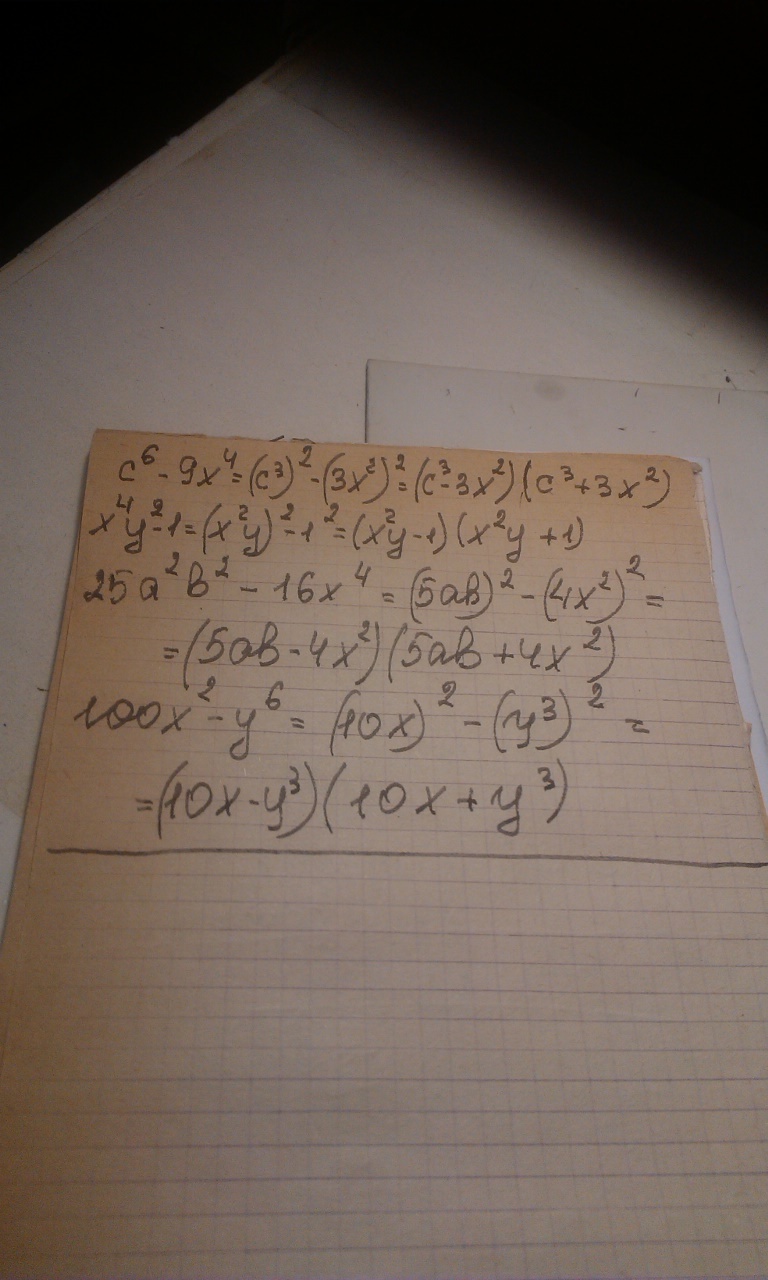 c⁶ - 9x⁴ = (c³)² - (3x²)² = (c³ - 3x²)(c³ + 3x²)
x⁴y² - 1 = (x²y)² - 1² = (x²y - 1)(x²y + 1)
25a²b² - 16x⁴ = (5ab)² - (4x²)² =
= (5ab - 4x²)(5ab + 4x²)
100x² - y⁶ = (10x)² - (y³)² =
= (10x - y³)(10x + y³)